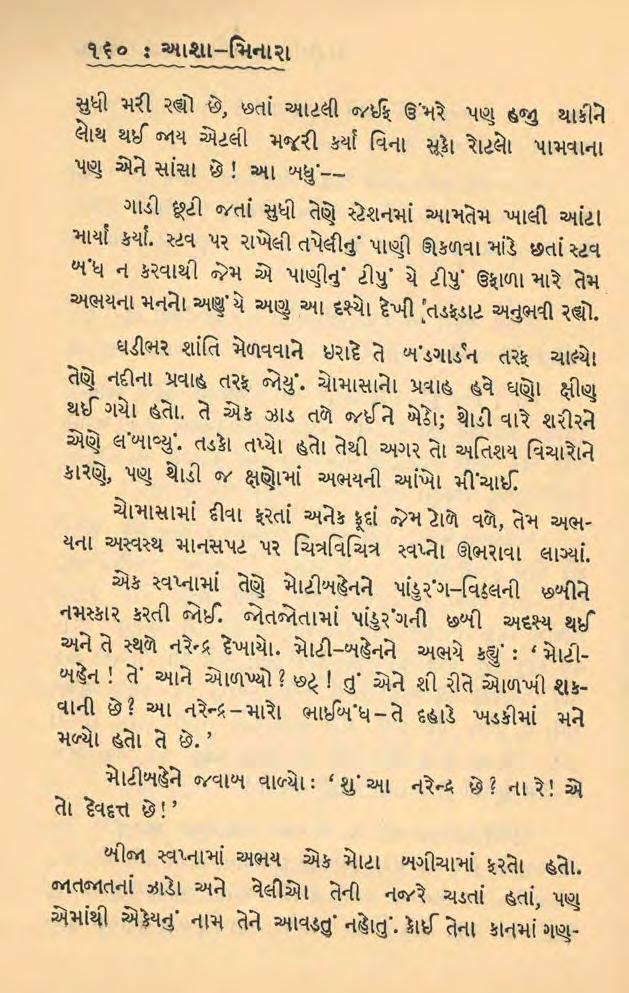 ૧૬૦ : આશા-મિનારા
સુધી મરી રહ્યો છે, છતાં આટલી જઈફ ઉંમરે પણ હજી થાકીને
લોથ થઈ જાય એટલી મજૂરી કર્યા વિના સૂકો રોટલો પામવાના
પણ એને સાંસા છે ! આ બધું--
ગાડી છૂટી જતાં સુધી તેણે સ્ટેશનમાં આમતેમ ખાલી આંટા
માર્યા કર્યા. સ્ટવ પર રાખેલી તપેલીનું પાણી ઊકળવા માંડે છતાં સ્ટવ
બંધ ન કરવાથી જેમ એ પાણીનું ટીપું યે ટીપું ઉફાળા મારે તેમ
અભયના મનનો અણું યે અણુ આ દશ્યો દેખી તડફડાટ અનુભવી રહ્યો.
ઘડીભર શાંતિ મેળવવાને ઇરાદે તે બંડગાર્ડન તરફ ચાલ્યો
તેણે નદીના પ્રવાહ તરફ જોયું. ચોમાસાનો પ્રવાહ હવે ઘણો ક્ષીણ
થઈ ગયો હતો. તે એક ઝાડ તળે જઈને બેઠો; થોડી વારે શરીરને
એણે લંબાવ્યું. તડકો તપ્યો હતો તેથી અગર તો અતિશય વિચારોને
કારણે, પણ થોડી જ ક્ષણોમાં અભયની આંખો મીંચાઈ.
ચોમાસામાં દીવા ફરતાં અનેક ફૂદાં જેમ ટોળે વળે, તેમ અભ-
યના અસ્વસ્થ માનસપટ પર ચિત્રવિચિત્ર સ્વપ્નો ઊભરાવા લાગ્યાં.
એક સ્વપ્નામાં તેણે મોટીબહેનને પાંડુરંગ-વિઠ્ઠલની છબીને
નમસ્કાર કરતી જોઈ. જોતજોતામાં પાંડુરંગની છબી અદશ્ય થઈ
અને તે સ્થળે નરેન્દ્ર દેખાયો. મોટી-બહેનને અભયે કહ્યું : ‘ મોટી-
બહેન ! તેં આને ઓળખ્યો ? છટ્ ! તું એને શી રીતે ઓળખી શક-
વાની છે ? આ નરેન્દ્ર-મારો ભાઈબંધ-તે દહાડે ખડકીમાં મને
મળ્યો હતો તે છે. ’
મોટીબહેને જવાબ વાળ્યો : ‘ શું આ નરેન્દ્ર છે ? ના રે ! એ
તો દેવદત્ત છે ! ’
બીજા સ્વપ્નામાં અભય એક મોટા બગીચામાં ફરતો હતો.
જાતજાતનાં ઝાડો અને વેલીઓ તેની નજરે ચડતાં હતાં, પણ
એમાંથી એકેયનું નામ તેને આવડતું નહોતું. કોઈ તેના કાનમાં ગણ-